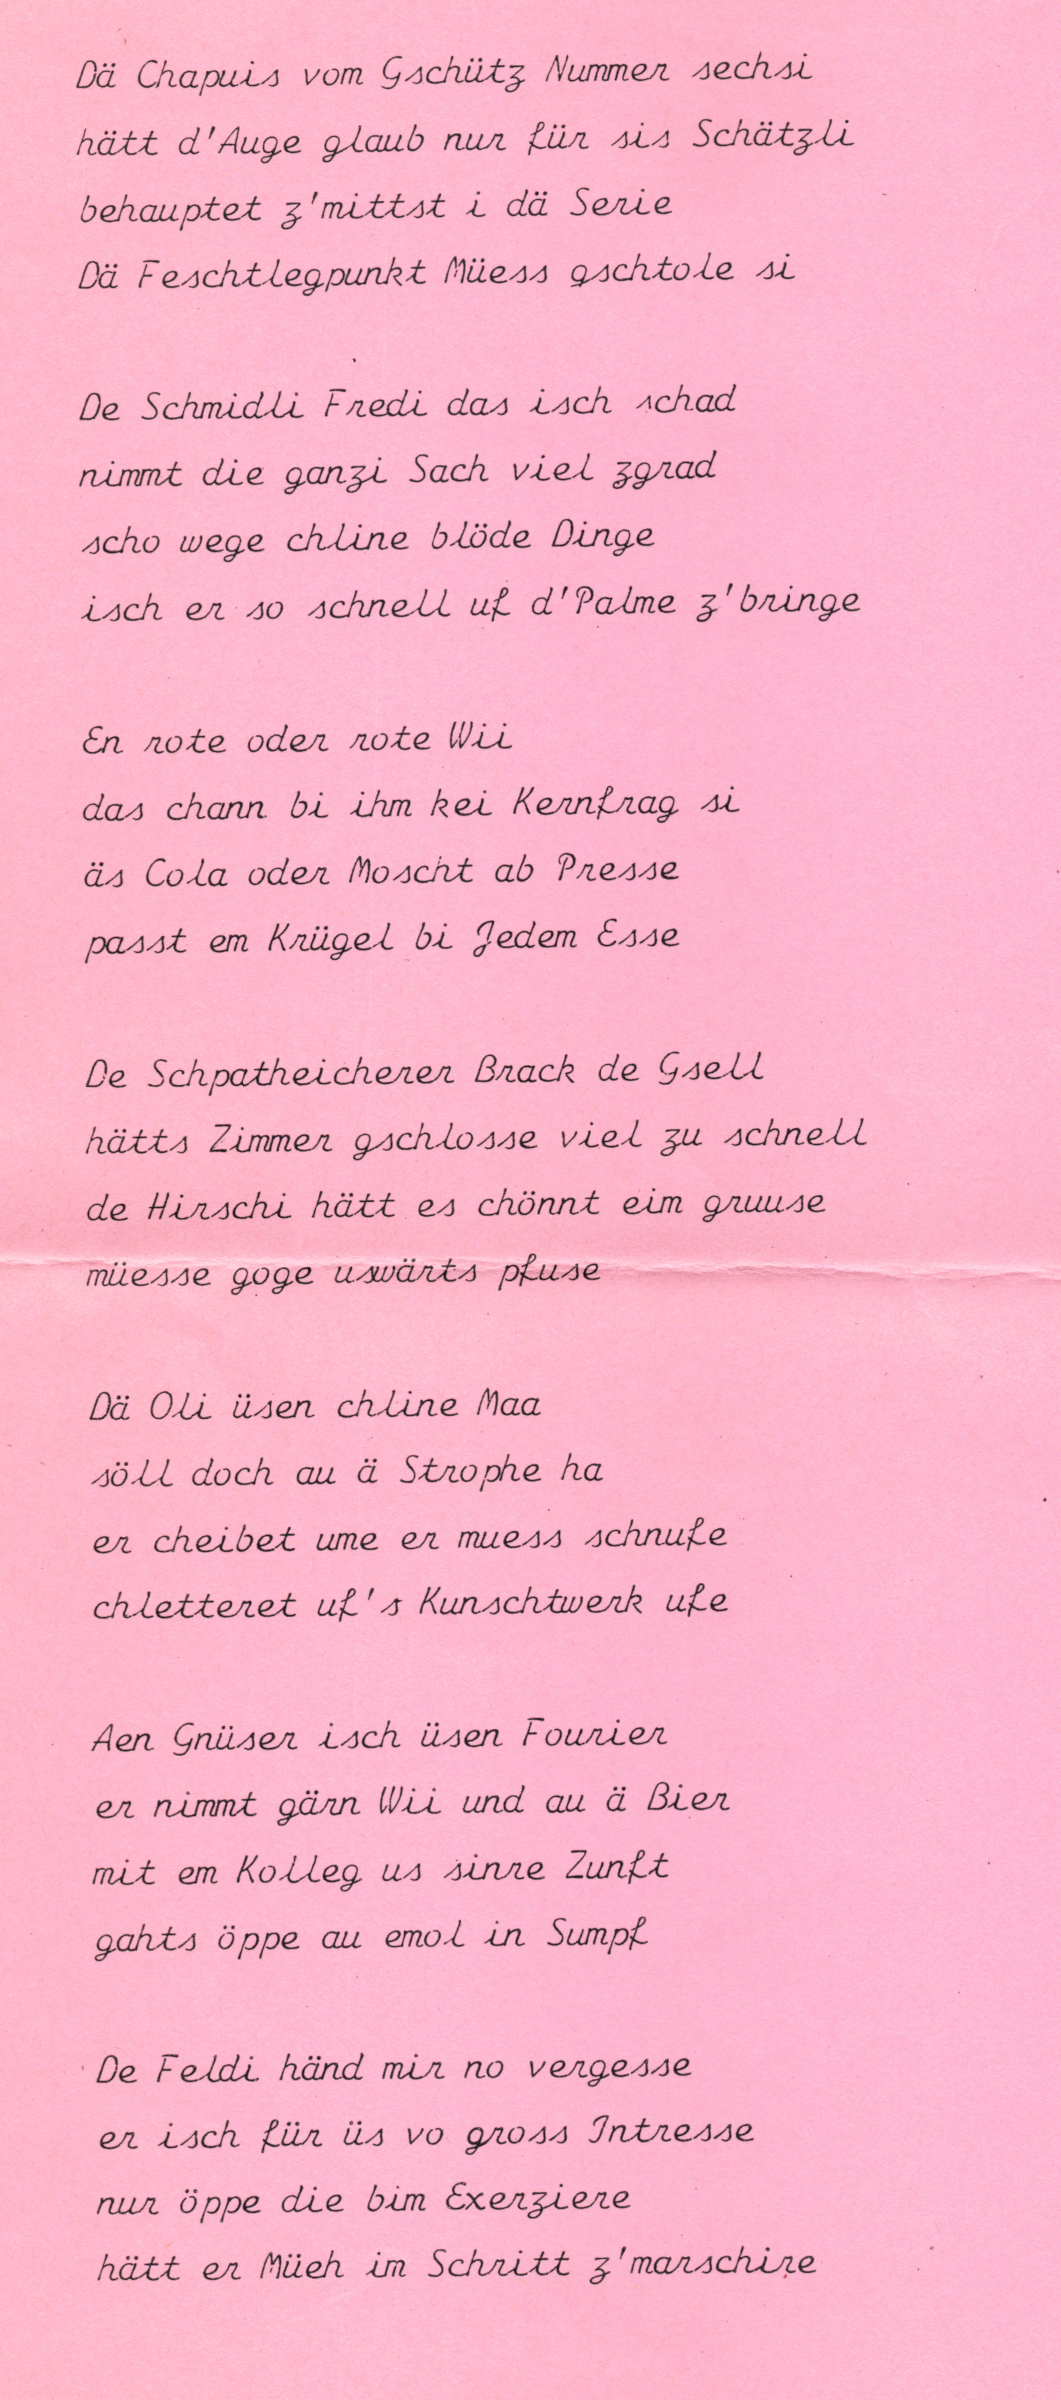 Dä Chapuis vom Gschütz Nummer sechsi
hätt d'Auge glaub nur für sis Schätzli
behauptet z'mittst i dä Serie
Dä Feschtlegpunkt Müess gschtole si
De Schmidli Fredi das isch schad
nimmt die ganzi Sach viel zgrad
scho wege chline blöde Dinge
isch er so schnell uf d'Palme z'bringe
En rote oder rote Wii
das chann bi ihm kei Kernfrag si
äs Cola oder Moscht ab Presse
passt em Krügel bi Jedem Esse
De Schpatheicherer Brack de Gsell
hätts Zimmer gschlosse viel zu schnell
de Hirschi hätt es chönnt eim gruuse
müesse goge uswärts pfuse
Dä Oli üsen chline Maa
söll doch au ä Strophe ha
er cheibet ume er muess schnufe
chletteret uf's Kunschtwerk ufe
Aen Gnüser isch üsen Fourier
er nimmt gärn Wii und au ä Bier
mit em Kolleg us sinre Zunft
gahts öppe au emol in Sumpf
De Feldi händ mir no vergesse
er isch für üs vo gross Intresse
nur öppe die bim Exerziere
hätt er Müeh im Schritt z'marschire